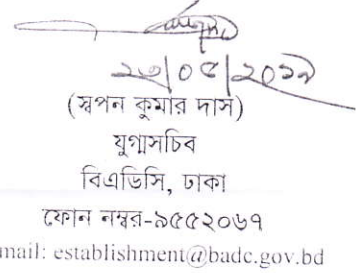 ২৩/০৫/২০১৯
(স্বপন কুমার দাস)
যুগ্মসচিব
বিএডিসি, ঢাকা
ফোন নম্বর-৯৫৫২০৬৭
mail: establishment@badc.gov.bd